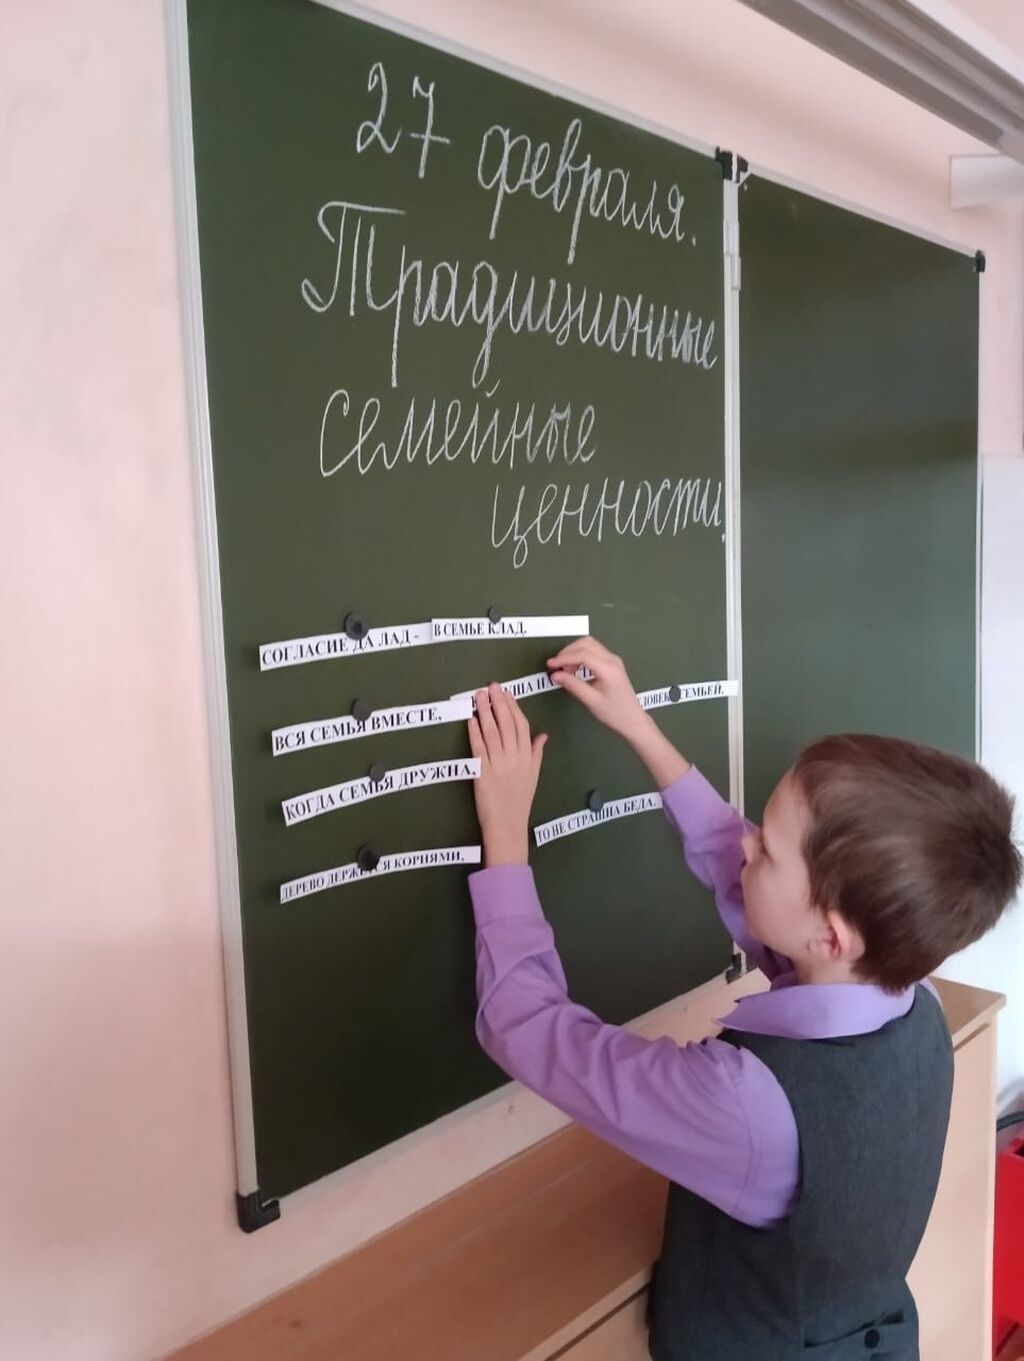 27 февраля.
Традиционные
семейные
ценности.
СОГЛАСИЕ ДА ЛАД - В СЕМЬЕ КЛАД.
ВСЯ СЕМЬЯ ВМЕСТЕ,
СЕМЬЕЙ.
КОГДА СЕМЬЯ ДРУЖНА,
ТО НЕ СТРАШНА БЕДА.
ДЕРЕВО ДЕРЖИТСЯ КОРНЯМИ,